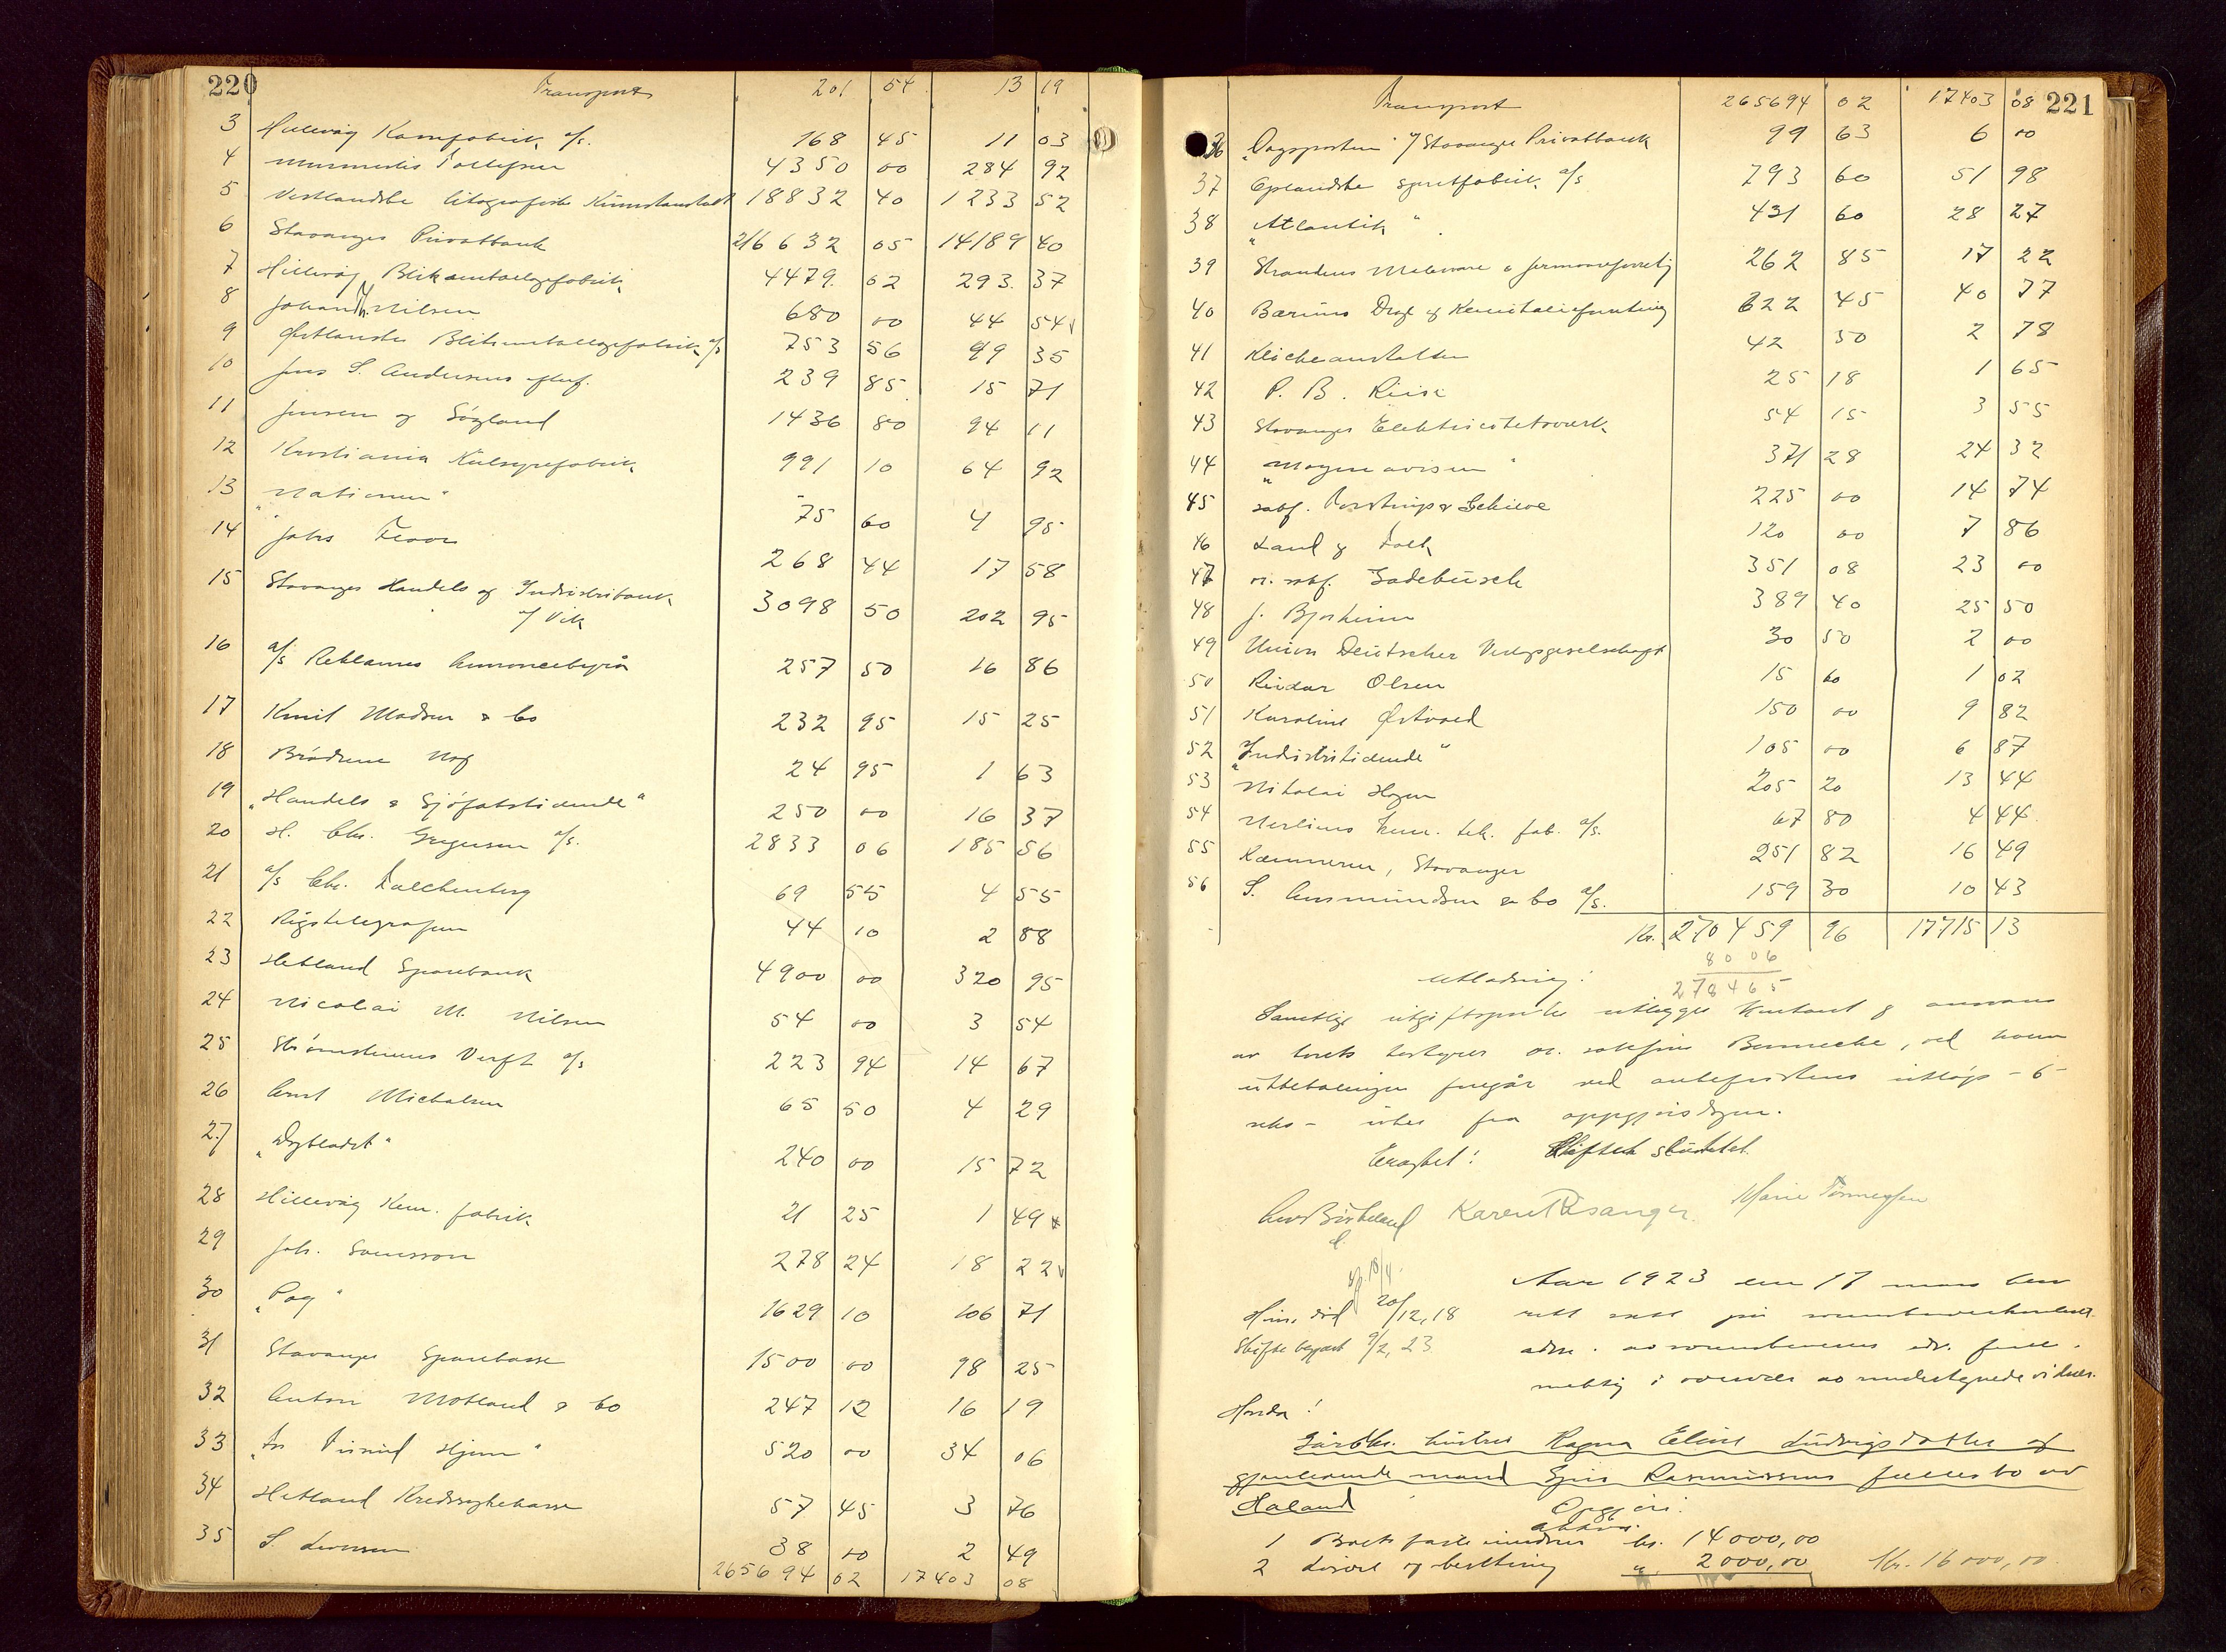 220
Transport 201 54 13 19
3 Hillevåg Kamfabrik a/s. 168 45 11 03
4 Murmester Tollefsen 4350 00 284 92
5 Vestlandske litografiske Kunstanstalt 18832 40 1233 52
6 Stavanger Privatbank 216632 05 14189 40
7 Hillevåg Blikemballagefabrik 4479 02 293 37
8 Johan H. Nilsen 680 00 44 54
9 Østlandske Blikemballagefabrik a/s 753 56 49 35
10 Jens S. Andersens efterf. 239 85 15 71
11 Jensen og Sögland 1436 80 94 11
12 Kristiania Kulsyrefabrik 991 10 64 92
13 "Nationen" 75 60 4 95
14 Johs 268 44 17 58
15 Stavanger Handels og Industribank
f/ Vik 3098 50 202 95
16 a/s Reklames Annoncebyrå 257 50 16 86
17 Emil Madsen & Co 232 95 15 25
18 Brödrene 24 95 1 63
19 "Handels & Sjöfartstidende" 250 00 16 37
20 H. Chr. Gregersen a/s. 2833 06 185 56
21 a/s Chr. Falchenberg 69 55 4 55
22 Rigstelegrafen 44 10 2 88
23 Hetland Sparebank 4900 00 320 95
24 Nicolai M. Nilsen 54 00 3 54
25 Strömstensens Verft a/s 223 94 14 67
26 Michalsen 65 50 4 29
27 "Dagbladet" 240 00 15 72
28 Hillevåg Kem. fabrik 21 25 1 49
29 Joh. Svensson 278 24 18 22
30 "Pag" 1629 10 106 71
31 Stavanger Sparekasse 1500 00 98 25
32 Anton Motland & Co 247 12 16 19
33 Hjem" 520 00 34 06
34 Hetland Kredssykekasse 57 45 3 76
35 S. Svensen 38 00 2 49
265694 02 17403 08
221
Transport 265694 02 17403 08
36 "Dagsposten" f/ Stavanger Privatbank 99 63 6 00
37 Oplandske spritfabrik a/s 793 60 51 98
38 "Atlantik" 431 60 28 27
39 262 85 17 22
40 Bærums Drog og Kemikalieforretning 622 45 40 77
41 Klicheanstalten 42 50 2 78
42 P. B. Riise 25 18 1 65
43 Stavanger Elektricitetsverk 54 15 3 55
44 "Morgenavisen" 371 28 24 32
45 sakf. & Schiöe 225 00 14 74
46 Land og Folk 120 00 7 86
47 o.r. sakf. Gadebusch 351 08 23 00
48 J. Bjorheim 389 40 25 50
49 Union Deutscher Verlagsgeselschaft 30 50 2 00
50 Reidar Olsen 15 60 1 02
51 Karoline Østvold 150 00 9 82
52 "Industritidende" 105 00 6 87
53 Nikolai Hagen 205 20 13 44
54 Merlins kem. tek. fab. a/s. 67 80 4 44
55 Kæmneren, Stavanger 251 82 16 49
56 S. Aasmundsen & Co a/s. 159 30 10 43
Kr. 270459 96 17715 13
8006
278465
Utlodning:
Samtlige utgiftsposter utlegges kontant og anvises
av boets bestyrer o.r. sakförer Bennecke, ved hvem
utbetalingen foregår ved ankefristens utlöp - 6 -
seks - uker fra oppgjörsdagen.
Eragtet: Skiftet sluttet
Birkeland Karen T Risanger. Marie Tönnessen
Aar 1923 den 17 mars blev
rett satt på sorenskriverkontoret
adm. av sorenskriverens edsv. full-
mektig i overvær av undertegnede vidner.
Hus. död 20/12, 18
Skifte begjært 9/2, 23
Hvorda!
Gårdbr. hustru Ragna Eline Ludvigsdatter og
gjenlevende mand Rasmussens fellesbo av
Håland
Opgjör:
Aktiva:
1 Boets faste eiendom kr. 14000,00
2 Lösöre og besetning " 2000,00 Kr. 16000,00